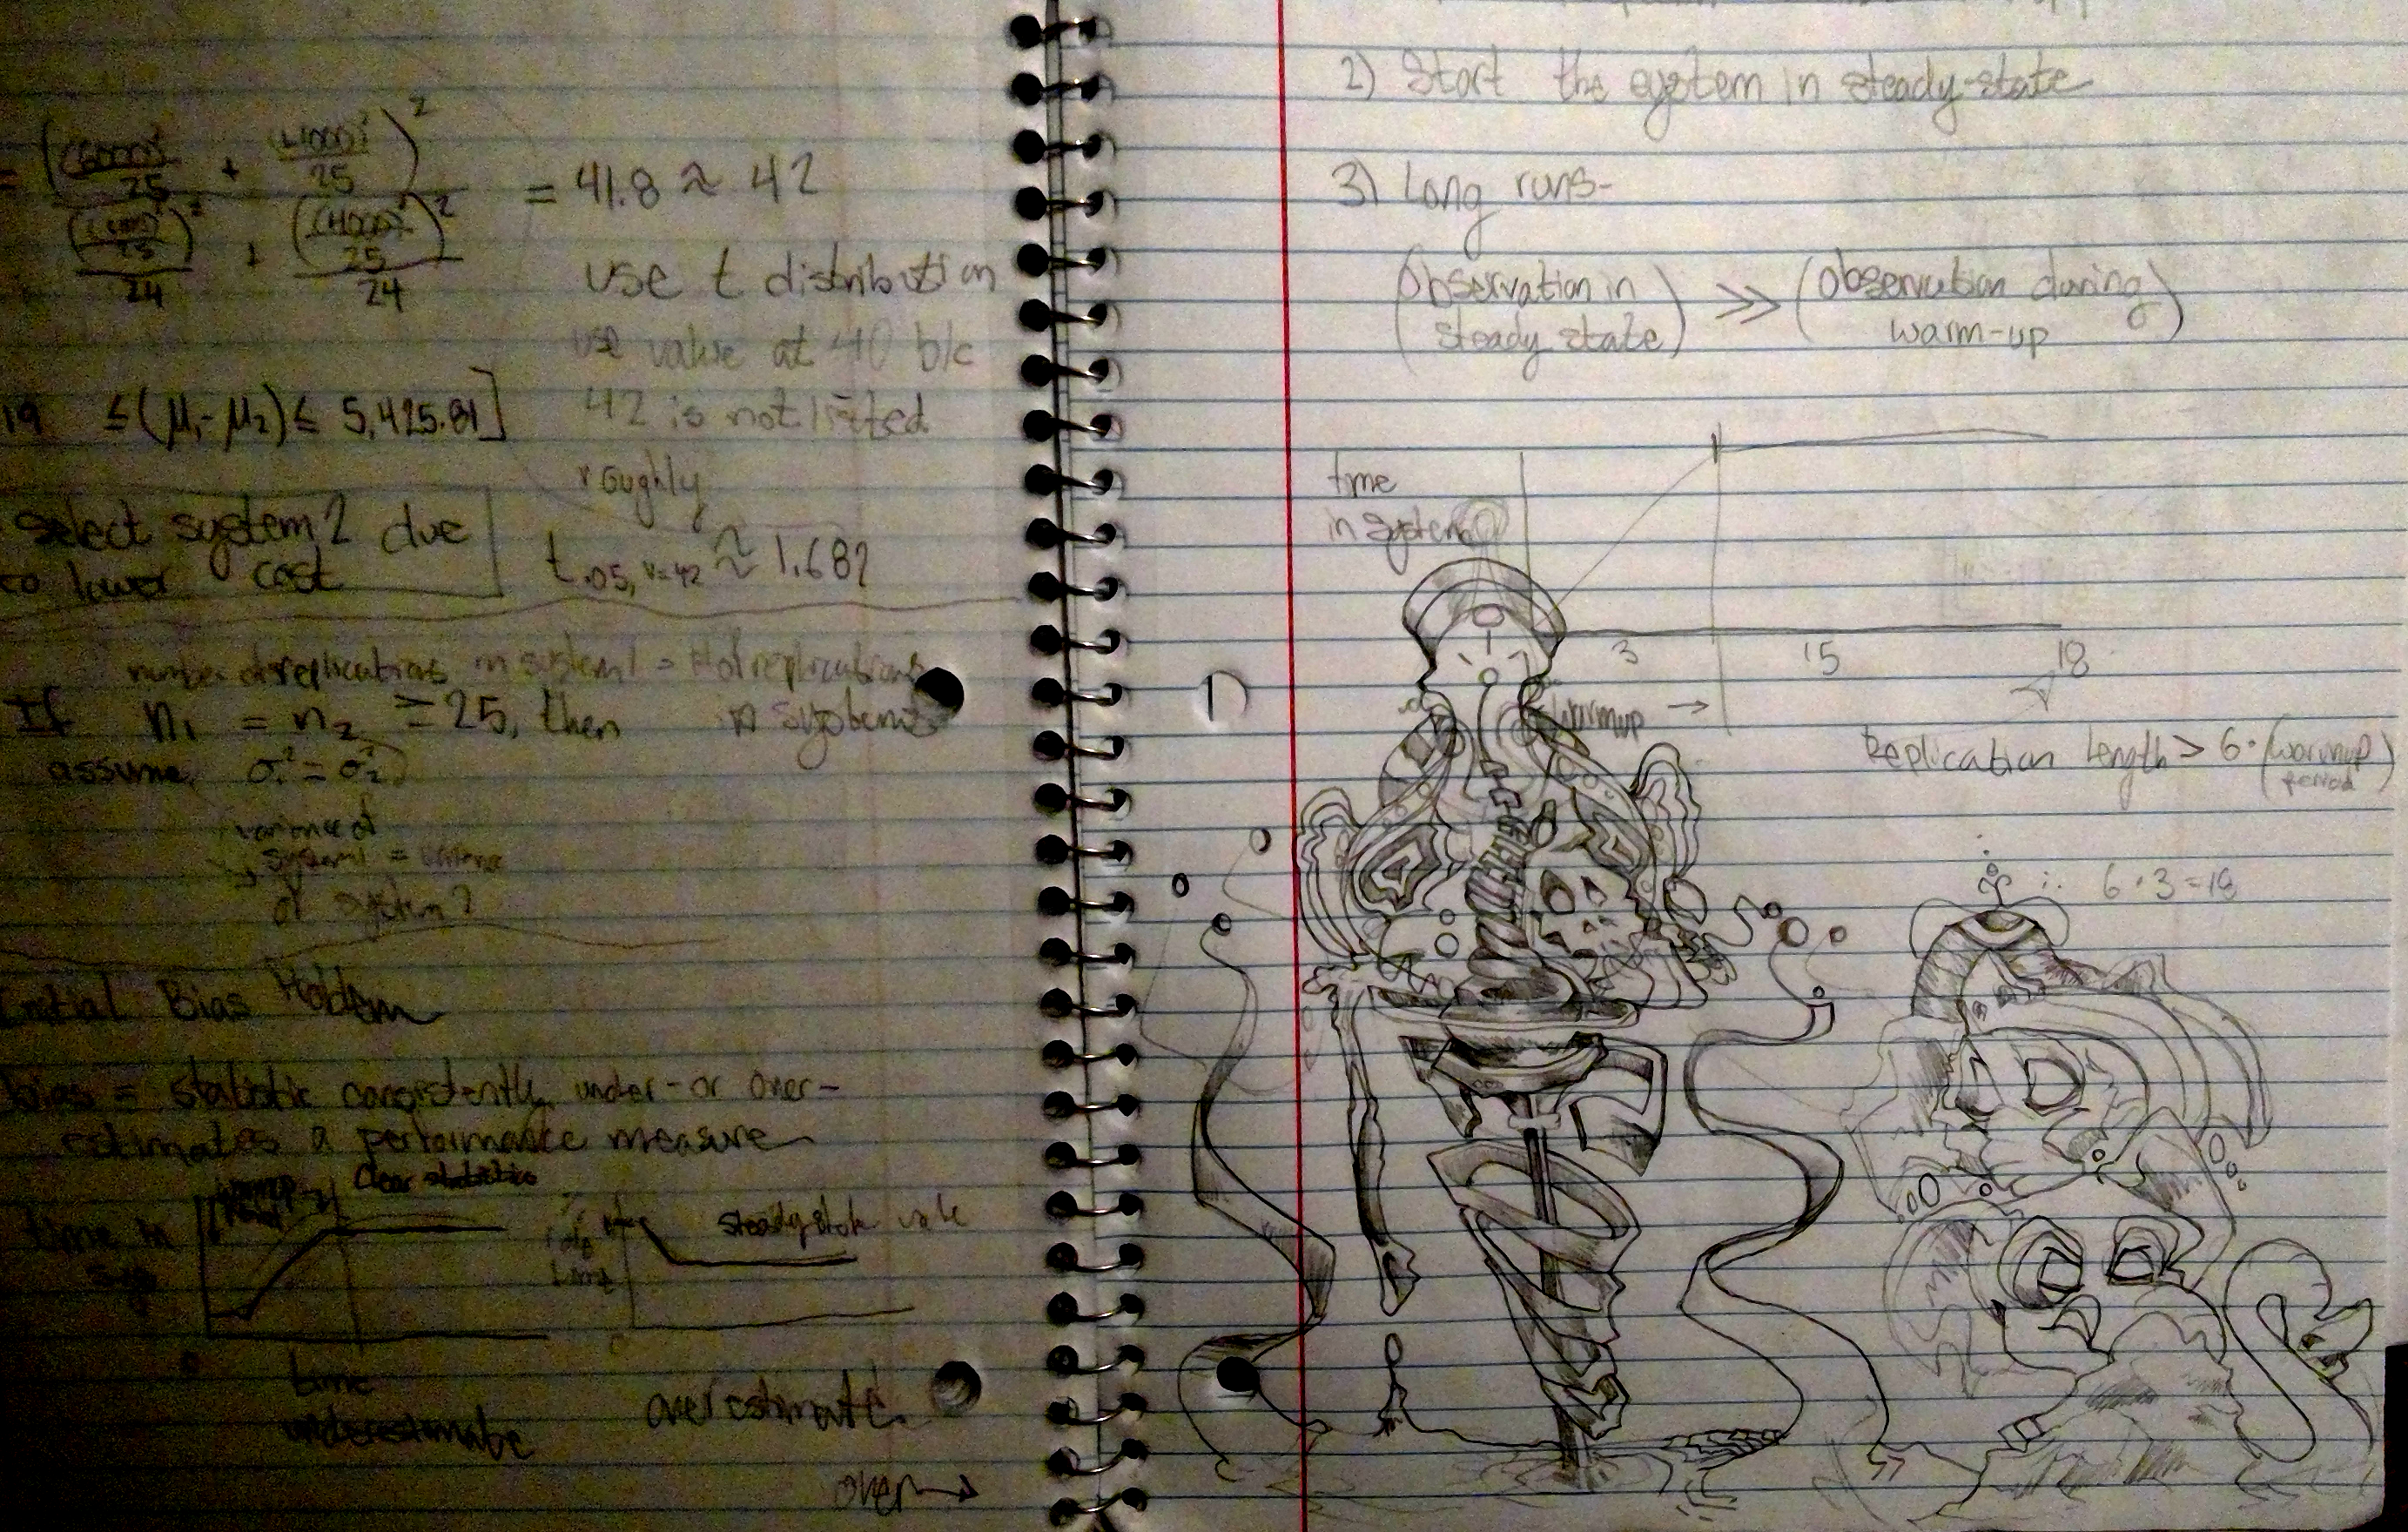 = ((6000)²/25 + (4000)²/25)²
((6000)²/25)²/24 + ((4000)²/25)²/24
= 41.8 ≈ 42
use t distribution
use value at 40 b/c
42 is not listed
roughly
t.05, v=42 ≈ 1.682
19 ≤ (μ₁-μ₂) ≤ 5,425.81]
select system 2 due
to lower cost
number of replications in system 1 = # of replications
in system 2
If n₁ = n₂ ≥ 25, then
assume σ₁² = σ₂²
variance of
system 1 = variance
of system 2
Initial Bias
bias = statistic consistently under- or over-
estimates a performance measure
clear statistics
time in
sys
time
underestimate
steady state value
overestimate
over →
2) Start the system in steady-state
3) Long runs-
(Observation in steady state) >> (Observation during warm-up)
time
in system
3 15 18
warmup →
Replication Length > 6 · (warmup period)
∴ 6 · 3 = 18